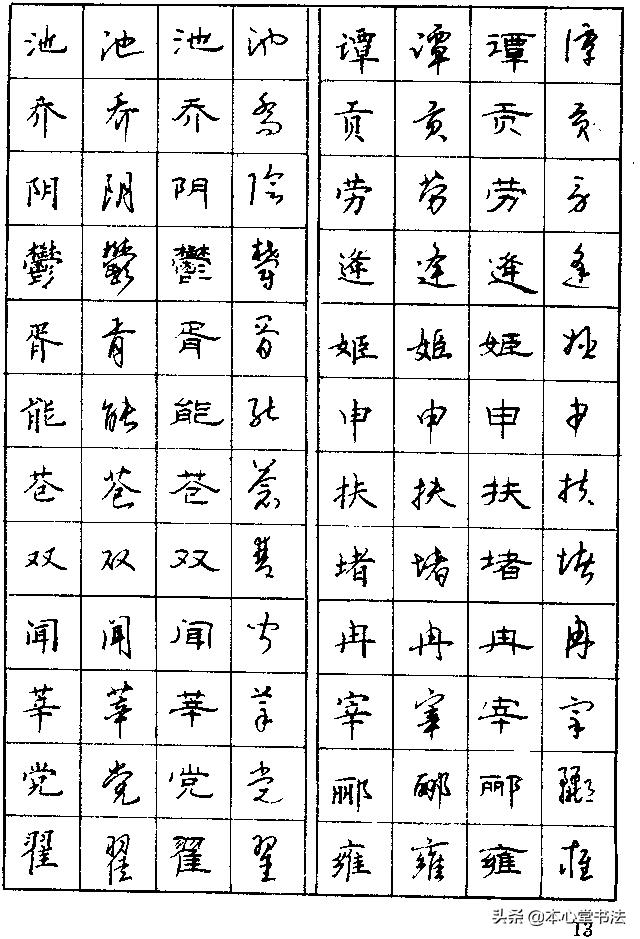 池 池 池 池
乔 乔 乔 喬
阴 阴 阴 陰
鬱 鬱 鬱 鬱
胥 胥 胥 胥
能 能 能 能
苍 苍 苍 蒼
双 双 双 雙
闻 闻 闻 闻
莘 莘 莘 莘
党 党 党 党
翟 翟 翟 翟
谭 谭 谭 谭
贡 贡 贡 贡
劳 劳 劳 劳
逄 逄 逄 逄
姬 姬 姬 姬
申 申 申 申
扶 扶 扶 扶
堵 堵 堵 堵
冉 冉 冉 冉
宰 宰 宰 宰
郦 郦 郦 酈
雍 雍 雍 雍
头条 @本心堂书法
13